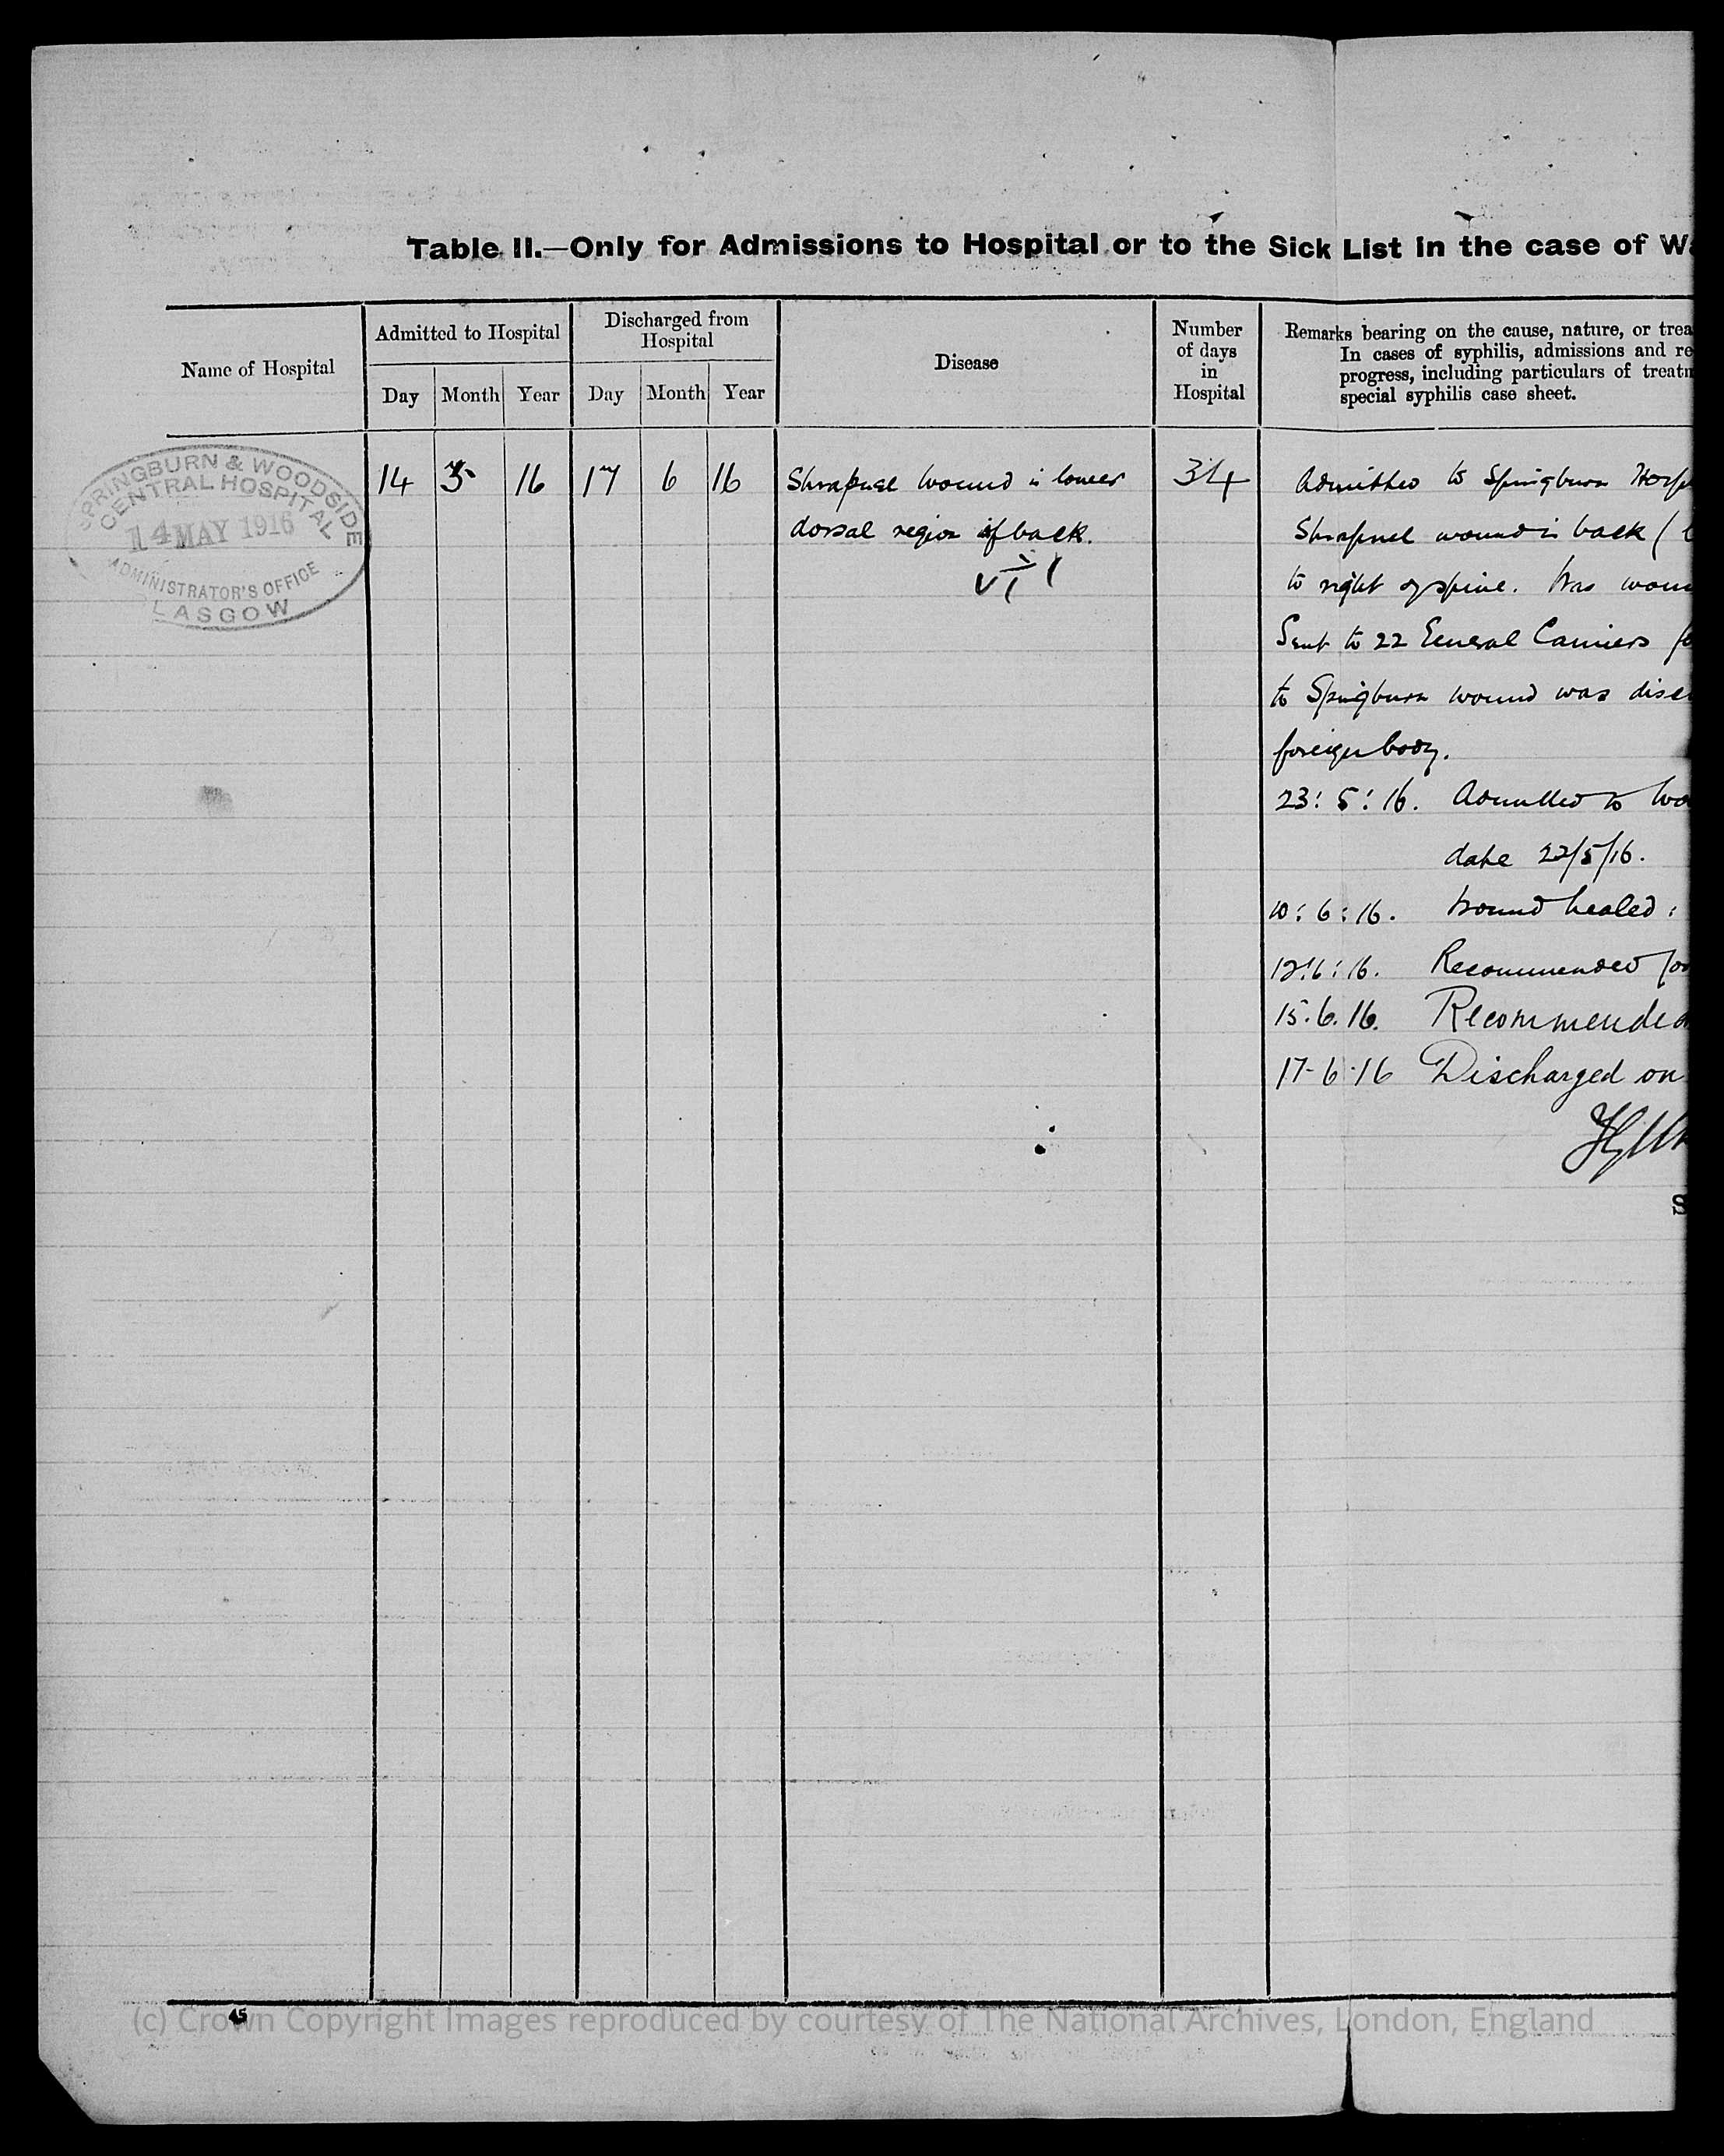 Table II.—Only for Admissions to Hospital or to the Sick List in the case of Wa
Name of Hospital
Admitted to Hospital
Discharged from
Hospital
Disease
Number
of days
in
Hospital
Remarks bearing on the cause, nature, or trea
In cases of syphilis, admissions and re
progress, including particulars of treatm
special syphilis case sheet.
Day Month Year Day Month Year
SPRINGBURN & WOODSIDE
CENTRAL HOSPITAL
14 MAY 1916
ADMINISTRATOR'S OFFICE
LASGOW
14 5 16 17 6 16 Shrapnel wound in lower 34
dorsal region of back.
Admitted to Springburn Hosp
Shrapnel wound in back (
to right of spine. Was woun
Sent to 22 General Camiers fo
to Springburn wound was disc
foreign body.
23:5:16. Admitted to Wo
date 22/5/16.
10:6:16. Wound healed:
12:6:16. Recommended for
15.6.16. Recommended
17-6-16 Discharged on
S
45
(c) Crown Copyright Images reproduced by courtesy of The National Archives, London, England